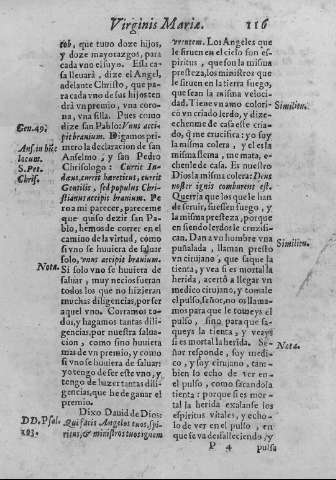 Virginis Mariæ. 116
tob, que tuuo doze hijos,
y doze mayorazgos, para
cada vno el suyo. Esta ca
sa lleuará, dize el Angel,
adelante Christo, que pa-
ra cada vno de sus hijos ten
drà vn premio, vna coro-
na, vna silla. Pues como
dize san Pablo: Vnus acci
pit branium. Digamos pri-
mero la declaracion de san
Anselmo, y san Pedro
Chrisologo: Currit In-
deus, currit hareticus, currit
Gentilis, sed populus Chri-
stianus accipit branium. Pe
ro a mi parecer, pareceme
que quiso dezir san Pa-
blo, hemos de correr en el
camino de la virtud, como
si vno se huuiera de saluar
solo, vnus accipit branium.
Si solo vno se huuiera de
saluar, muy necios fueran
todos los que no hizieran
muchas diligencias, por ser
aquel vno. Corramos to-
dos, y hagamos tantas dili-
gencias, por nuestra salua-
cion, como sino huuiera
mas de vn premio, y como
si vno se huuiera de saluar:
y o tengo de ser este vno, y
tengo de hazer tantas dili-
gencias, que he de ganar el
premio.
Dixo Dauid de Dios:
Qui facis Angelos tuos, spi
ritus, & ministros tuos ignem
Gen. 49.
Ans. in hūc
locum.
S. Pet.
Chris.
Nota.
DD. Psal.
103.
vrentem. Los Angeles que
le siruen en el cielo son es-
piritus, que son la misma
presteza, los ministros que
le siruen en la tierra fuego,
que sean la misma veloci-
dad. Tiene vn amo colori-
cō vn criado lerdo, y dize-
echenme de casa este cria-
do, q̃ me crucifica: yo soy
la misma colera, y el es la
misma flema, me mata, e-
chenle de casa. Es nuestro
Dios la misma colera: Deus
noster ignis comburens est.
Querria que los que le han
de seruir, fuessen fuego, y
la misma presteza, porque
en siendo lerdos le crucifi-
can. Dan a vn hombre vna
puñalada, llaman presto
vn cirujano, que saque la
tienta, y vea si es mortal la
herida, acertó a llegar vn
medico cirujano, y tomale
el pulso, señor, no os llama-
mos para que le tomeys el
pulso, sino para que sa-
queys la tienta, y veays
si es mortal la herida. Se-
ñor responde, soy medi-
co, y soy cirujano, tam-
bien lo echo de ver en
el pulso, como sacando la
tienta: porque si es mor-
tal la herida exalanse los
espiritus vitales, y echo-
lo de ver en el pulso, en
que se va desfalleciendo, y
Similien.
Similien.
Nota.
P 4 pulsa